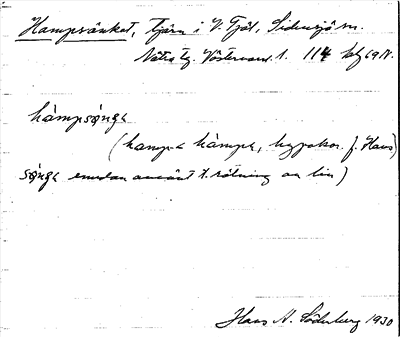 Hampsänket, tjärn i V. Fjäl, Sidensjö sn.
Nätra tg. Västernorrl. l. 114
hàmpsǫngɛ
(hampɛ hàmpɛ, hypokor. f. Hans)
sǫngɛ emedan använt t. rötning av lin)
Hans A. Söderberg 1930